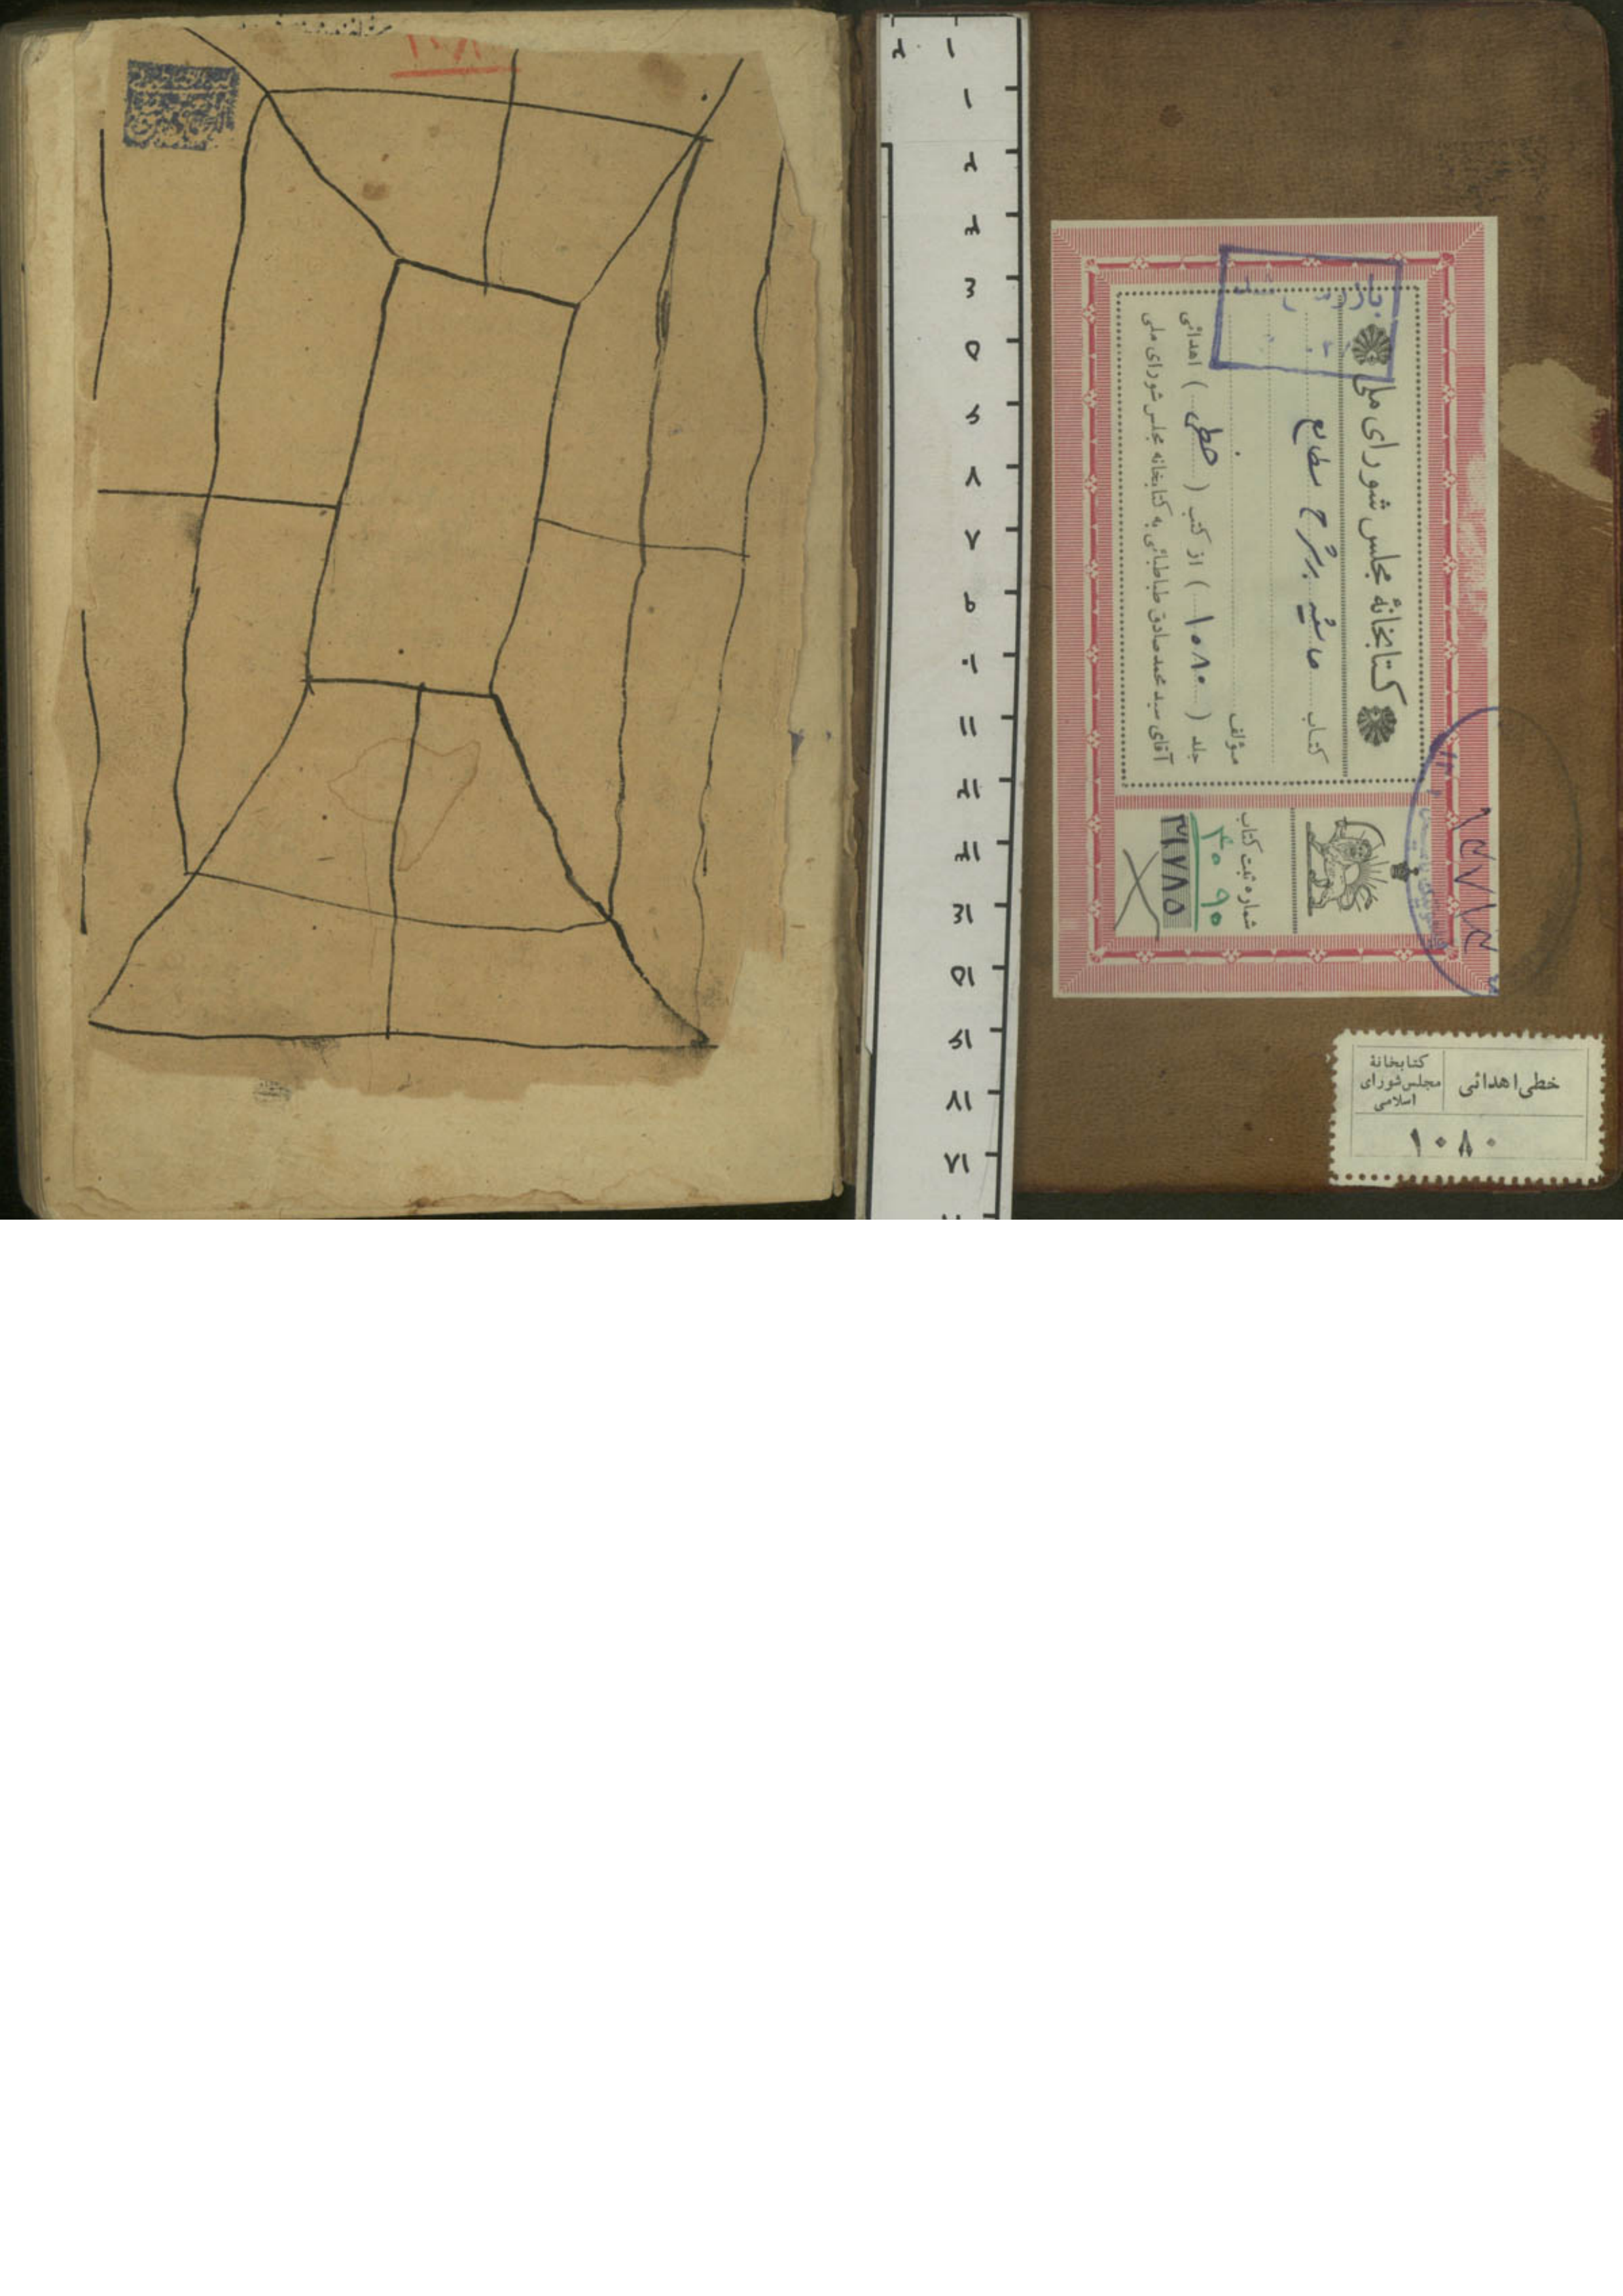 کتابخانهٔ مجلس شورای ملی
کتاب حاشیه بر شرح مطالع
مؤلف
جلد ( ۱۰۸۰ ) از کتب ( خطی ) اهدائی
آقای سید محمد صادق طباطبائی به کتابخانه مجلس شورای ملی
شماره ثبت کتاب
۳۰۹۰
۳۱۷۸۵
خطی اهدائی
کتابخانهٔ
مجلس شورای
اسلامی
۱۰۸۰
۱ ۲
۱
۲
۳
۴
۵
۶
۷
۸
۹
۱۰
۱۱
۱۲
۱۳
۱۴
۱۵
۱۶
۱۷
۱۸